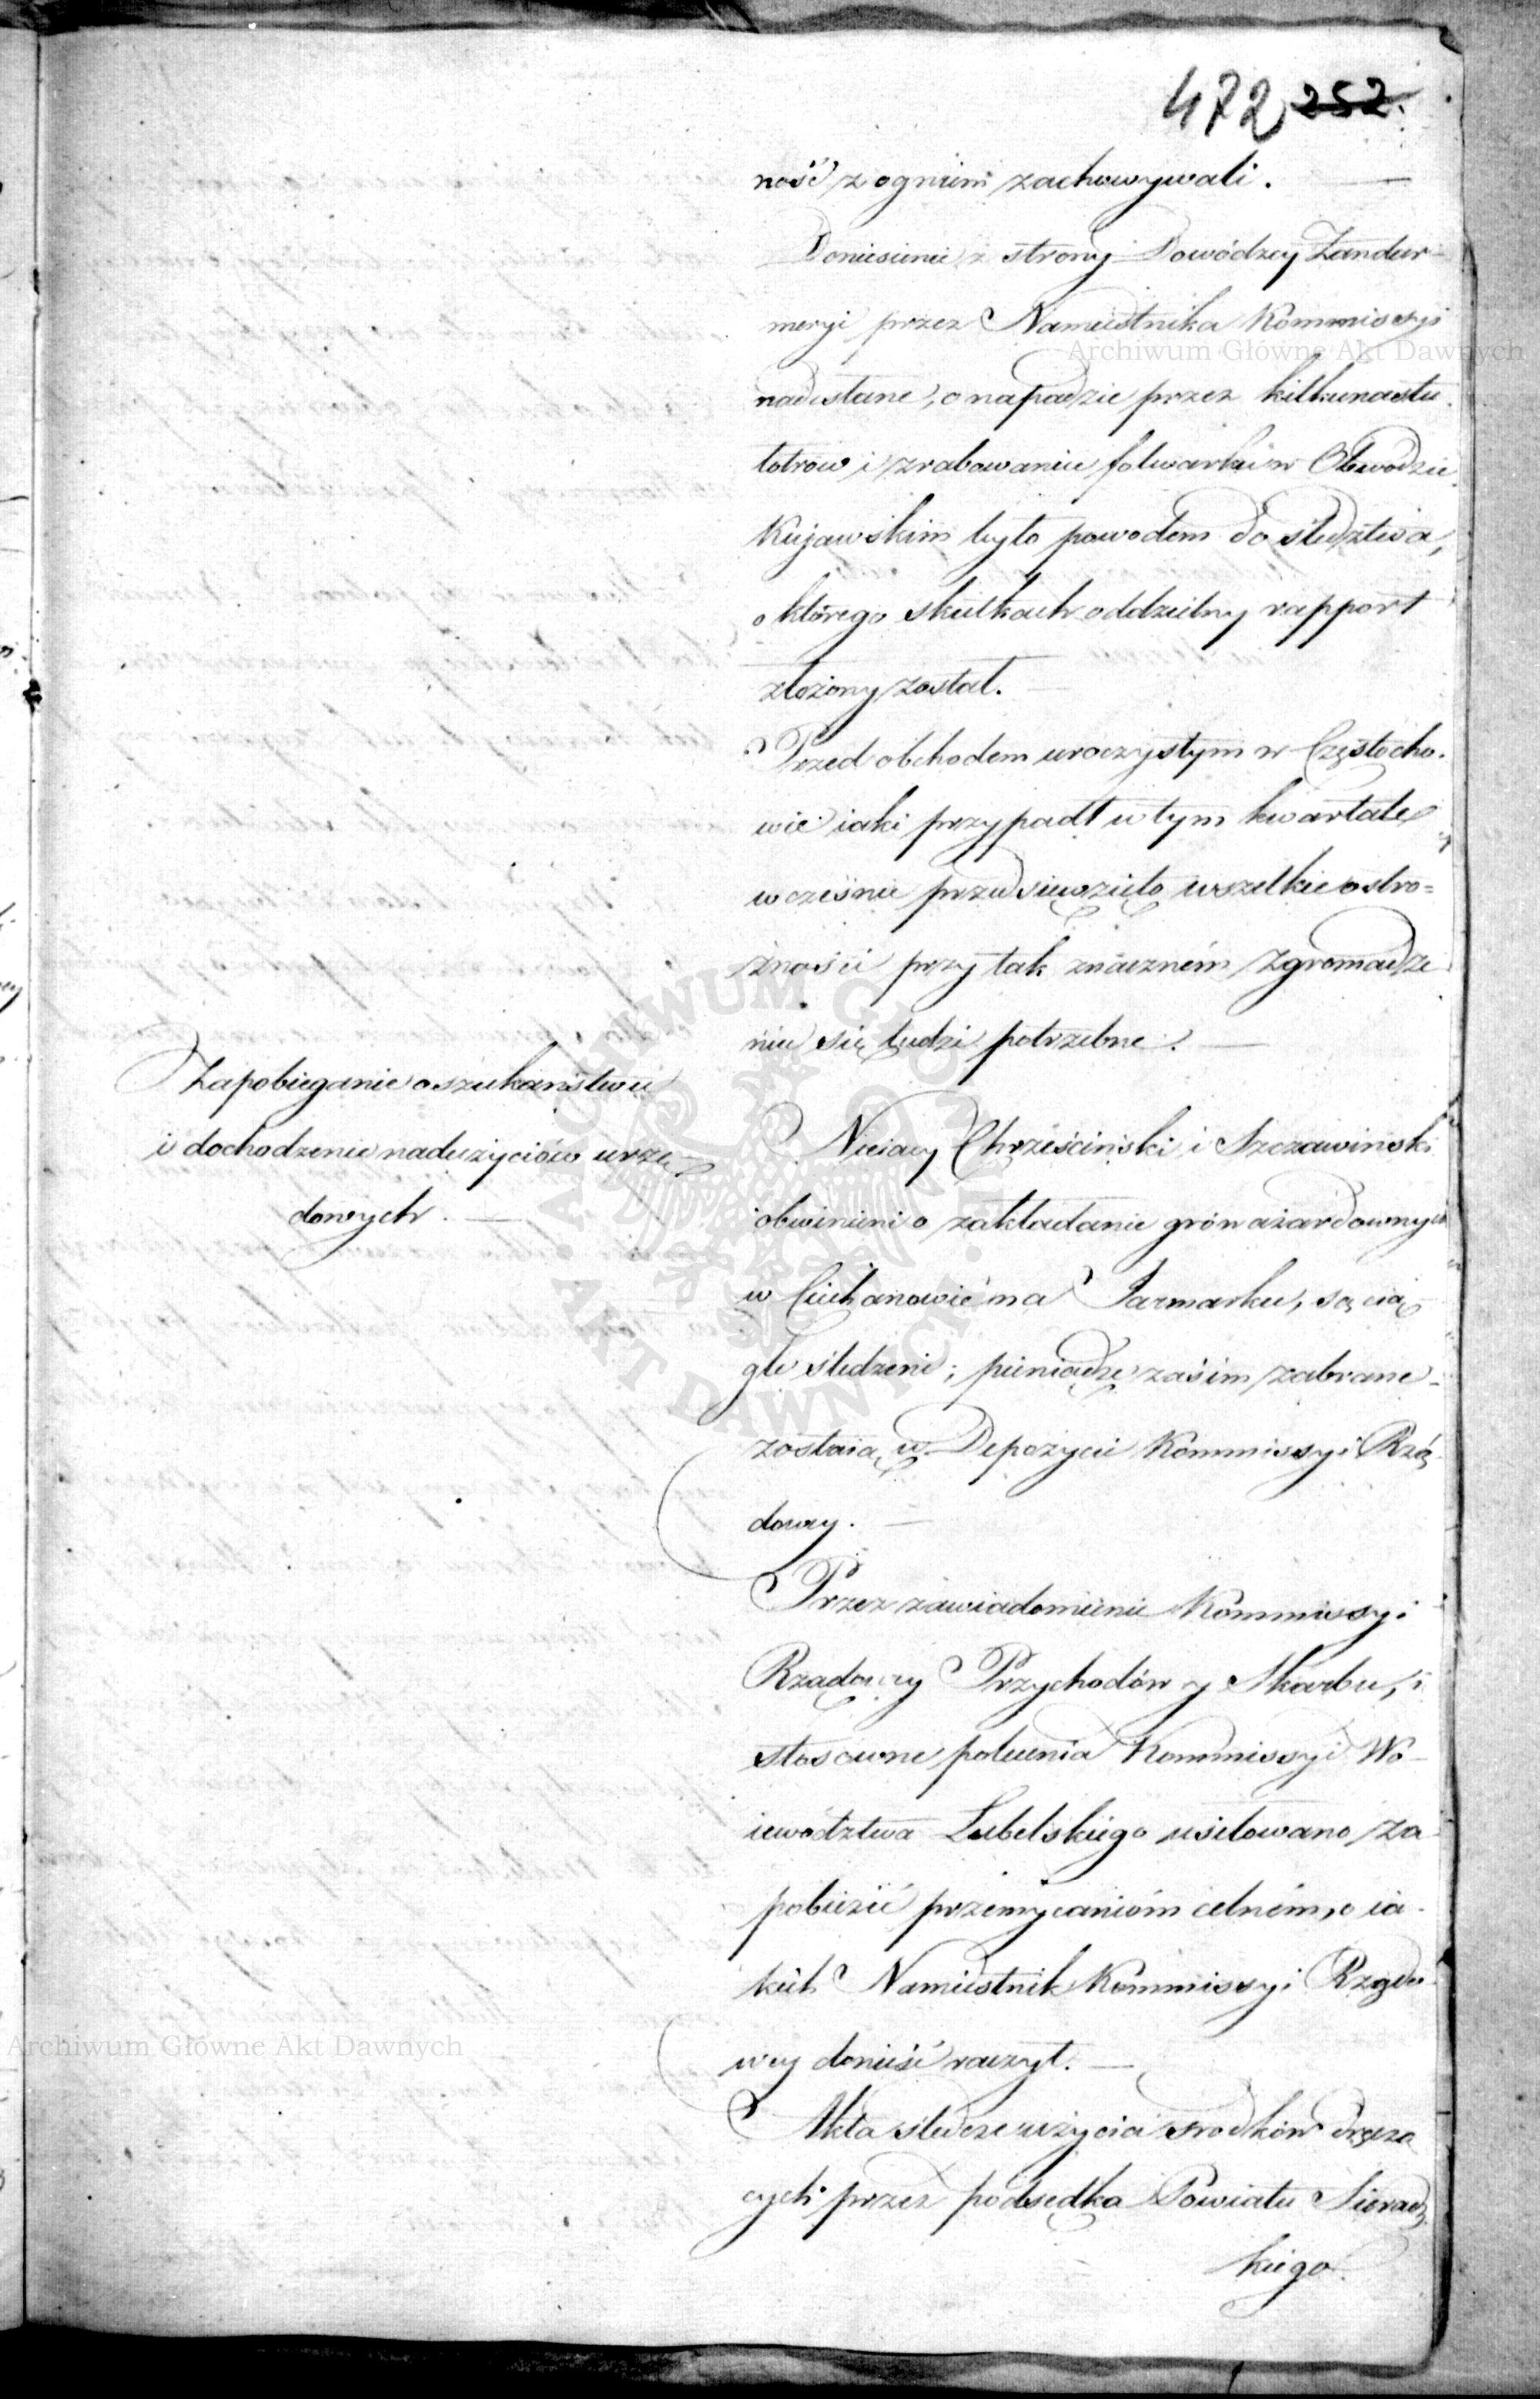 472 252.
ność z ogniem zachowywali.
Doniesienie z strony Dowódzcy Żandar-
meryi przez Namiestnika Kommissyi
nadesłane, o napadzie przez kilkunastu
łotrów i zrabowaniu folwarku w Obwodzie
Kujawskim było powodem do śledztwa,
o którego skutkach oddzielny rapport
złożony został.
Przed obchodem uroczystym w Częstocho-
wie iaki przypadł w tym kwartale
wcześnie przedsięwzięto wszelkie ostro=
żności przy tak znaczném zgromadze
niu się ludzi potrzebne.
Zapobieganie oszukaństwu
i dochodzenie nadużyciów urzę-
dowych.
Chrzściński i Szczawiński
obwinieni o zakładanie grów azardownych
w Ciechanowie na Jarmarku, są cią
gle śledzeni; pieniądze zaś im zabrane
zostaią w Depozycie Kommissyi Rzą
dowey.
Przez zawiadomienie Kommissyi
Rządowey Przychodów y Skarbu, i
stosowne polecenia Kommissyi Wo-
iewództwa Lubelskiego usiłowano za
pobiedz przemycaniom celném, o ia-
kich Namiestnik Kommissyi Rządo
wey donieść raczył.
Akta śledcze użycia srodków dręczą
cych przez podsędka Powiatu Sieradz
kiego
Archiwum Główne Akt Dawnych
Archiwum Główne Akt Dawnych
ARCHIWUM GŁÓWNE AKT DAWNYCH